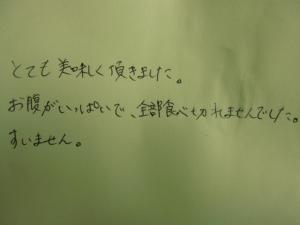 とても美味しく頂きました。
お腹がいっぱいで、全部食べ切れませんでした。
すいません。